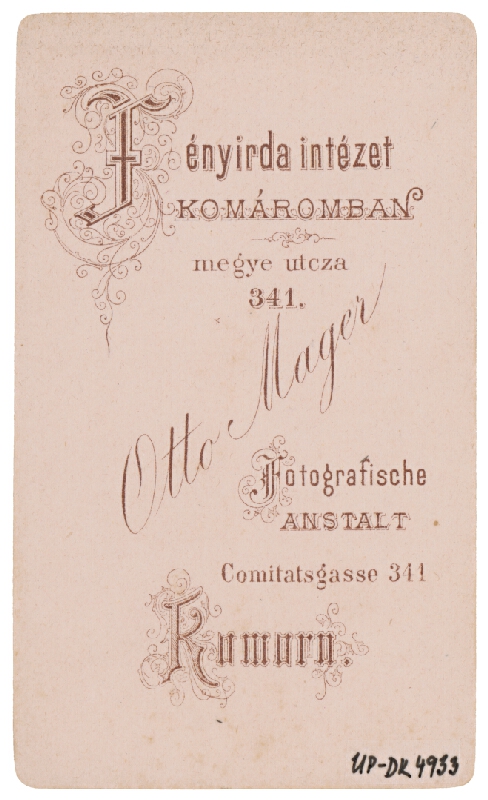 Fényirda intézet
KOMÁROMBAN
megye utcza
341.
Otto Mager
Fotografische
ANSTALT
Comitatsgasse 341
Komorn.
UP-DK 4933